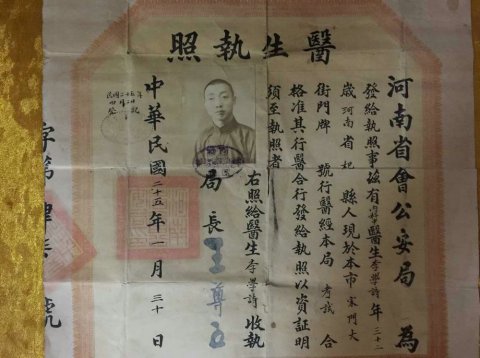 醫生執照
河南省會公安局 為
發給執照事茲有內科中醫生李學詩年三十一
歲河南省杞縣人現於本市宋門大
街門牌 號行醫經本局考試合
格准其行醫合行發給執照以資証明
須至執照者
右照給醫生李學詩收執
局長王尊五
中華民國二十五年一月三十日
字第 號